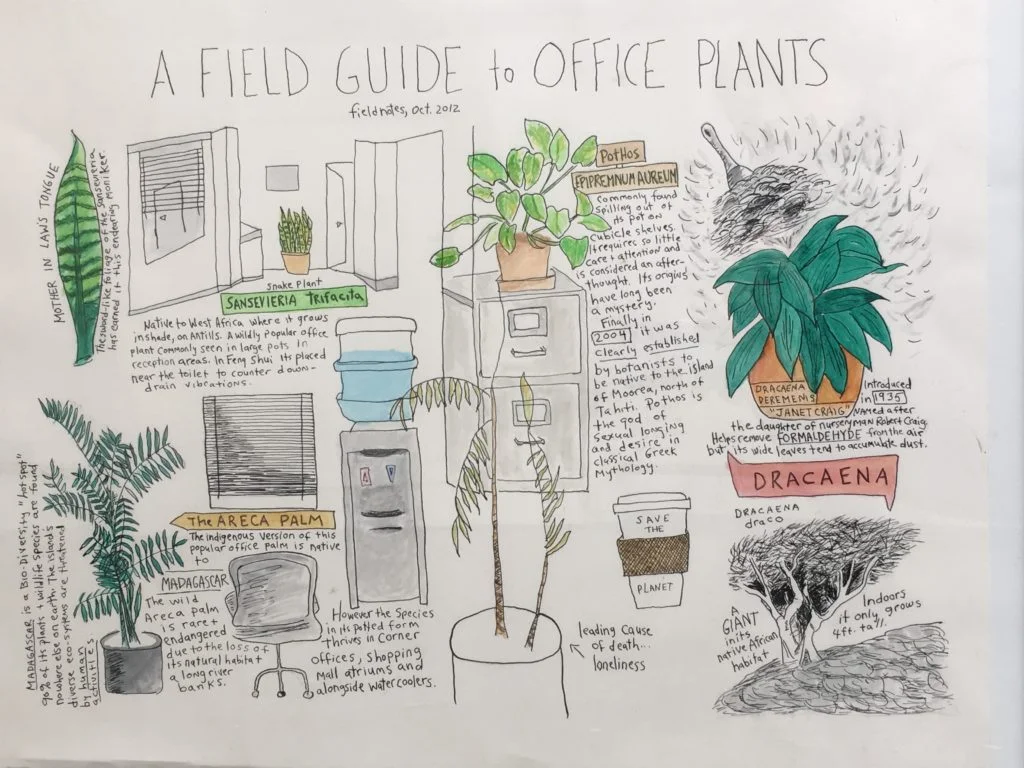 A FIELD GUIDE to OFFICE PLANTS
fieldnotes, Oct. 2012
MOTHER IN LAW'S TONGUE
The sword-like foliage of the Sansevieria
has earned it this endearing moniker.
Snake Plant
SANSEVIERIA Trifacita
Native to West Africa where it grows
in shade, on Anthills. A wildly popular office
plant commonly seen in large pots in
reception areas. In Feng Shui its placed
near the toilet to counter down-
drain vibrations.
Pothos
EPIPREMNUM AUREUM
Commonly found
spilling out of
its pot on
cubicle shelves.
It requires so little
care + attention and
is considered an after-
thought. Its origins
have long been
a mystery.
Finally in
2004 it was
clearly established
by botanists to
be native to the island
of Moorea, north of
Tahiti. Pothos is
the god of
sexual longing
and desire in
classical Greek
Mythology.
DRACAENA
DEREMENIS
"JANET CRAIG"
Introduced
in 1935
NAMED after
the daughter of nurseryman Robert Craig.
Helps remove FORMALDEHYDE from the air
but its wide leaves tend to accumulate dust.
DRACAENA
DRACAENA
draco
A
GIANT
in its
native African
habitat
Indoors
it only grows
4ft. tall.
MADAGASCAR is a Bio-Diversity "hot spot"
90% of its plants + wildlife species are found
nowhere else on earth. The island's
diverse eco-systems are threatened
by human
activities.
The ARECA PALM
The indigenous version of this
popular office palm is native
to
MADAGASCAR
The wild
Areca palm
is rare +
endangered
due to the loss of
its natural habitat
along river
banks.
However the Species
in its potted form
thrives in Corner
offices, shopping
mall atriums and
alongside watercoolers.
SAVE
THE
PLANET
leading cause
of death...
loneliness